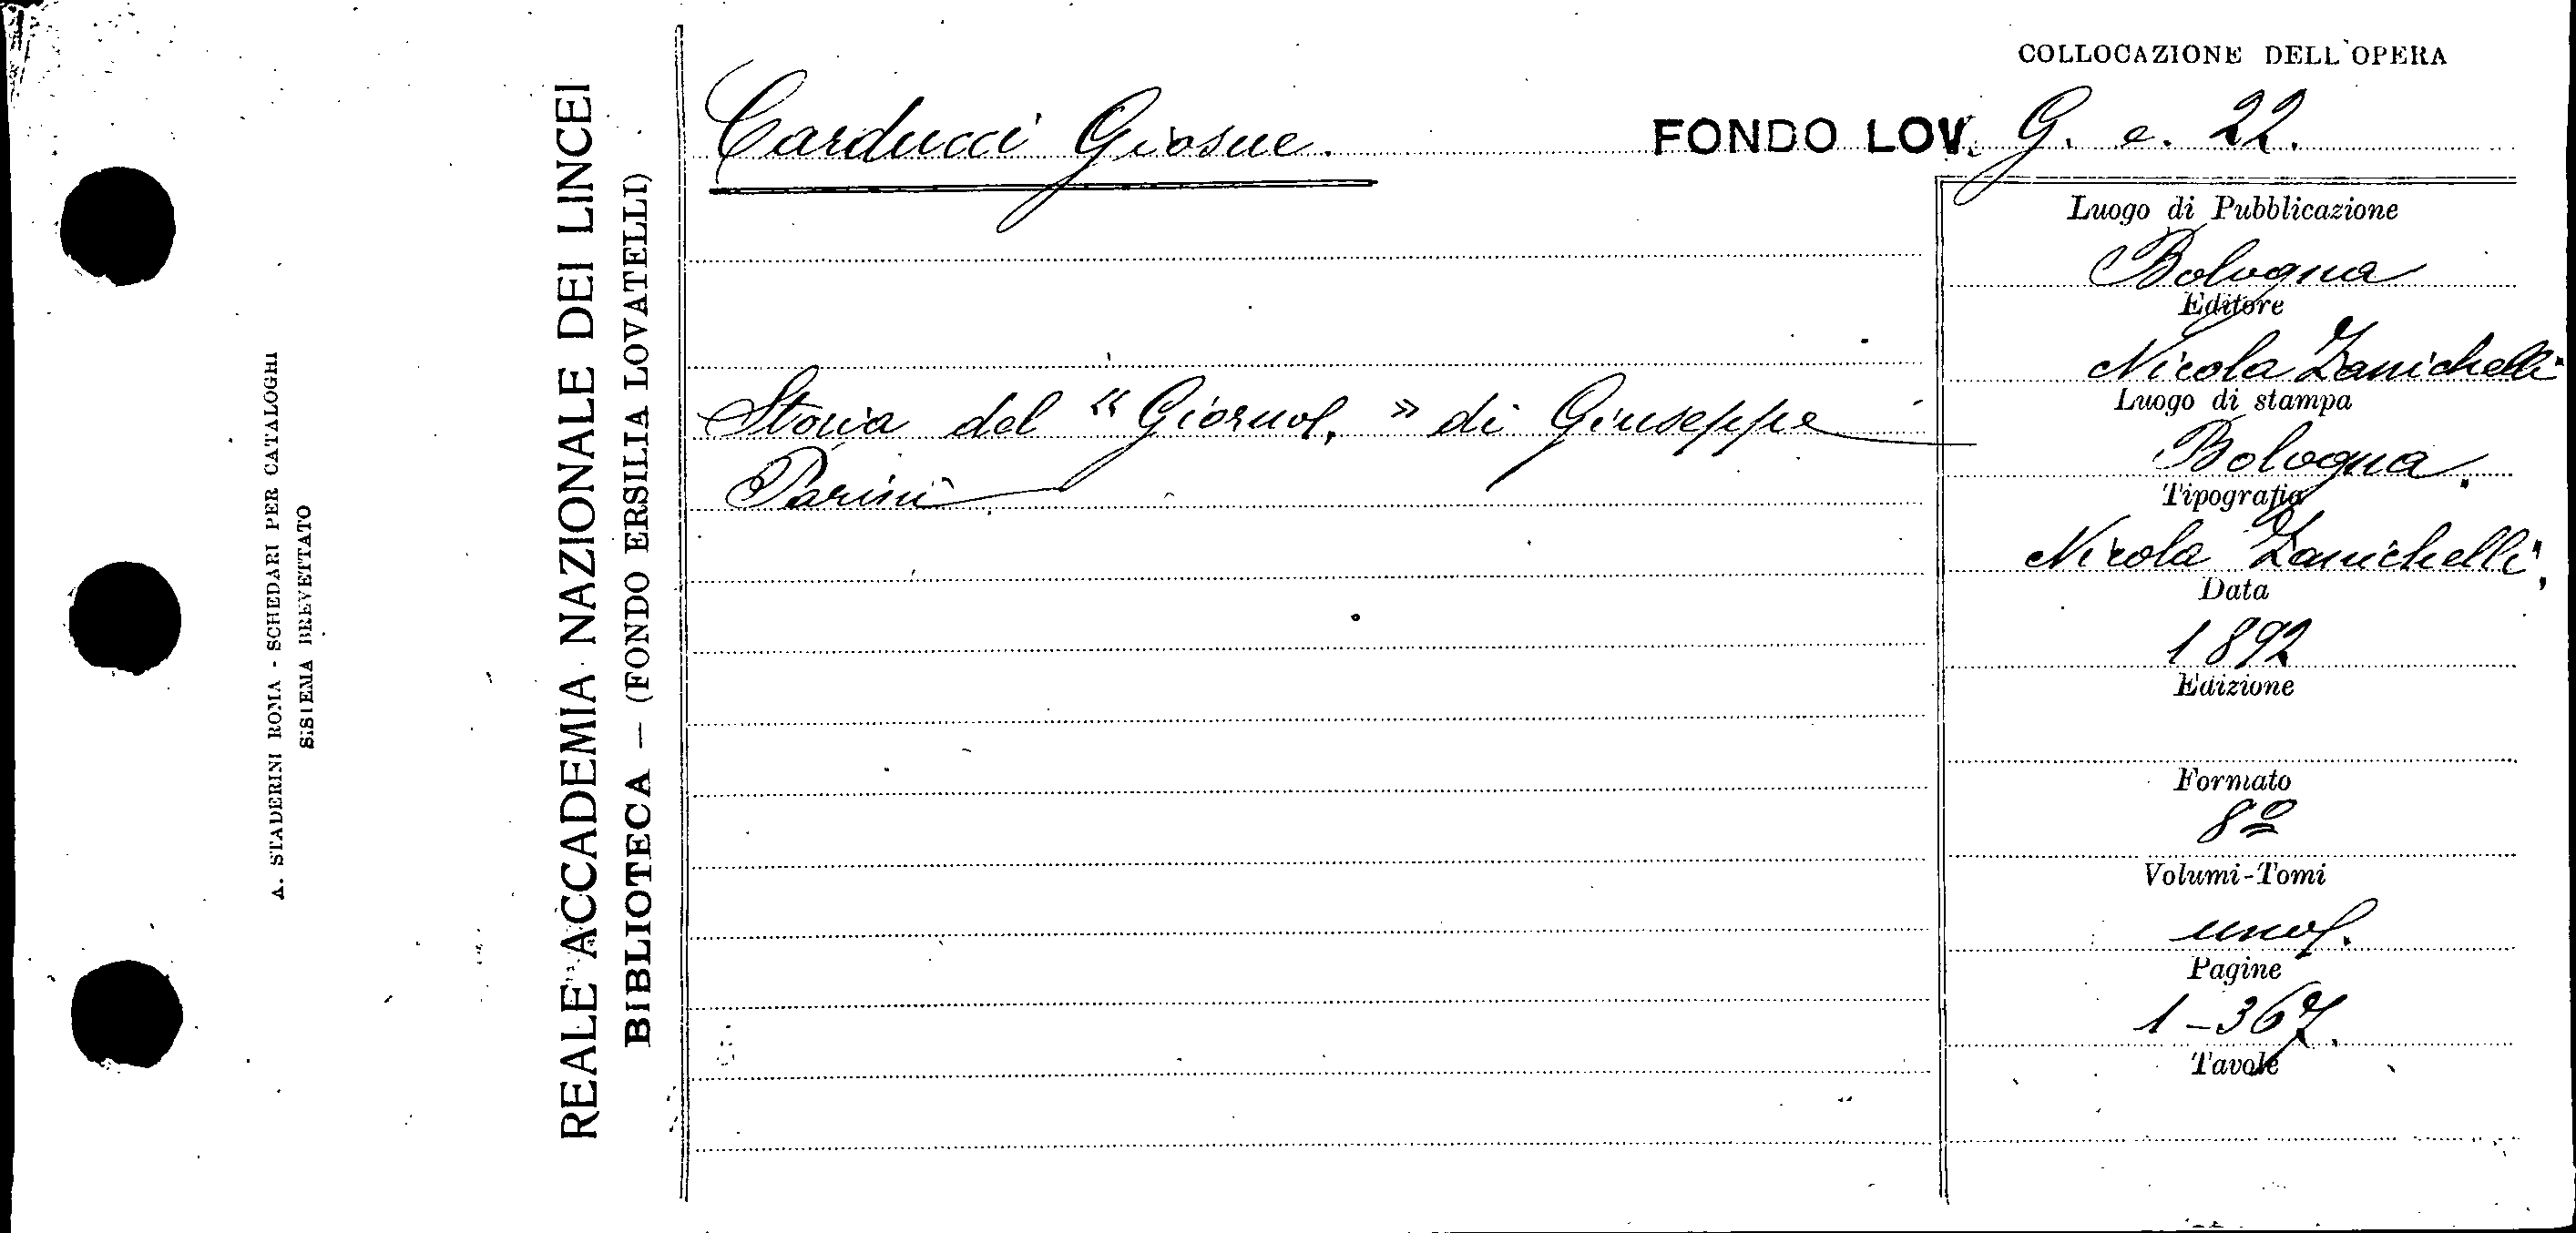 COLLOCAZIONE DELL'OPERA
Carducci Giosue.
FONDO LOV. G. e. 22.
Storia del "Giorno" di Giuseppe
Parini
Luogo di Pubblicazione
Bologna
Editore
Nicola Zanichelli
Luogo di stampa
Bologna.
Tipografia
Nicola Zanichelli,
Data
1892
Edizione
Formato
8º
Volumi-Tomi
uno.
Pagine
1-367.
Tavole
REALE ACCADEMIA NAZIONALE DEI LINCEI
BIBLIOTECA — (FONDO ERSILIA LOVATELLI)
A. STADERINI ROMA - SCHEDARI PER CATALOGHI
SISTEMA BREVETTATO